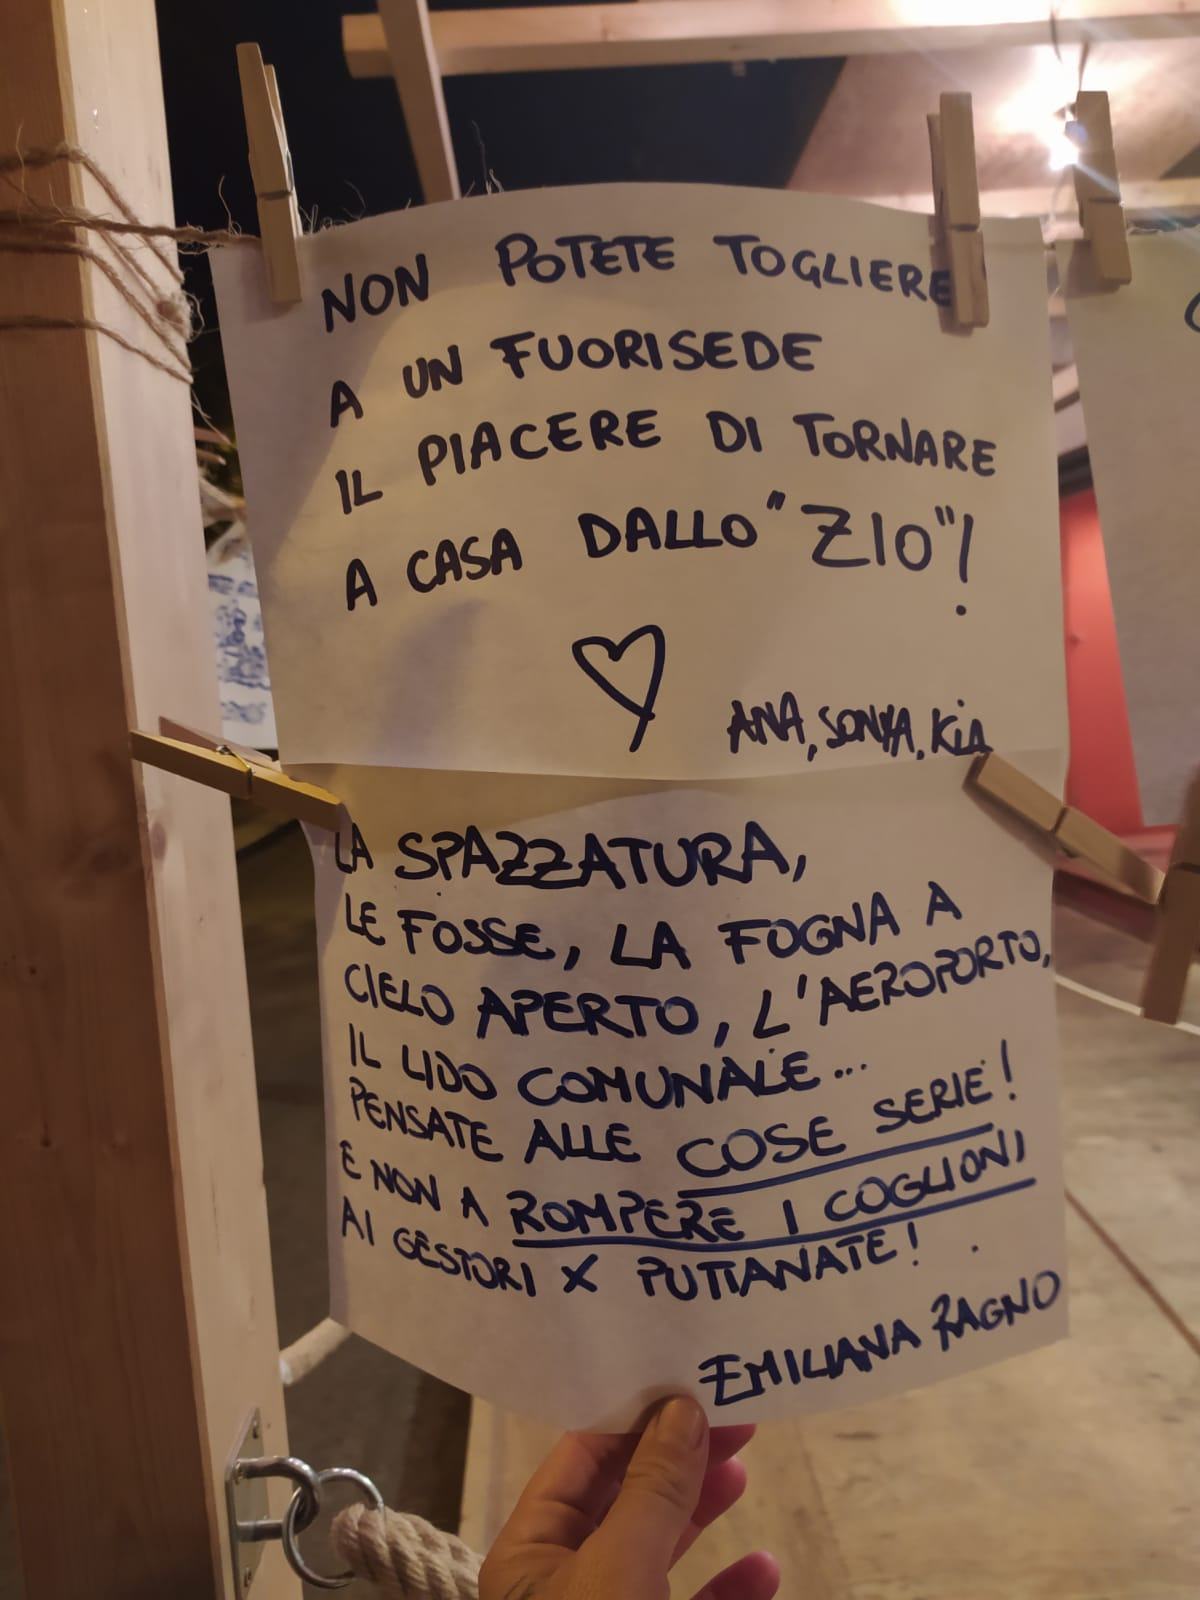 NON POTETE TOGLIERE
A UN FUORISEDE
IL PIACERE DI TORNARE
A CASA DALLO "ZIO"!
ANA, SONYA, KIA
LA SPAZZATURA,
LE FOSSE, LA FOGNA A
CIELO APERTO, L'AEROPORTO,
IL LIDO COMUNALE...
PENSATE ALLE COSE SERIE!
E NON A ROMPERE I COGLIONI
AI GESTORI X PUTTANATE!
EMILIANA RAGNO